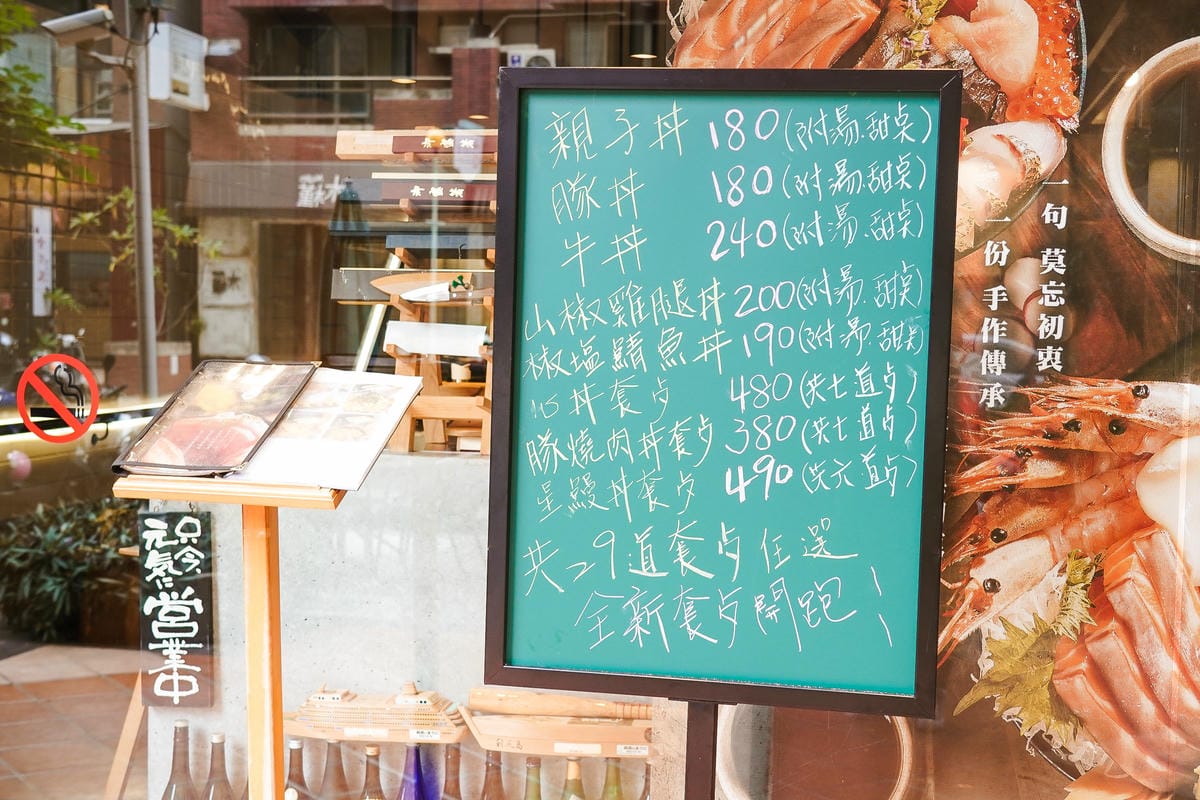 親子丼 180(附湯.甜点)
豚丼 180(附湯.甜点)
牛丼 240(附湯.甜点)
山椒雞腿丼 200(附湯.甜点)
椒塩鯖魚丼 190(附湯.甜点)
丼套歺 480(共七道歺)
豚燒肉丼套歺 380(共七道歺)
星鰻丼套歺 490(共六道歺)
共29道套歺任選
全新套歺開跑!
一句 莫忘初衷
一份 手作傳承
只今、
元気に
営業中